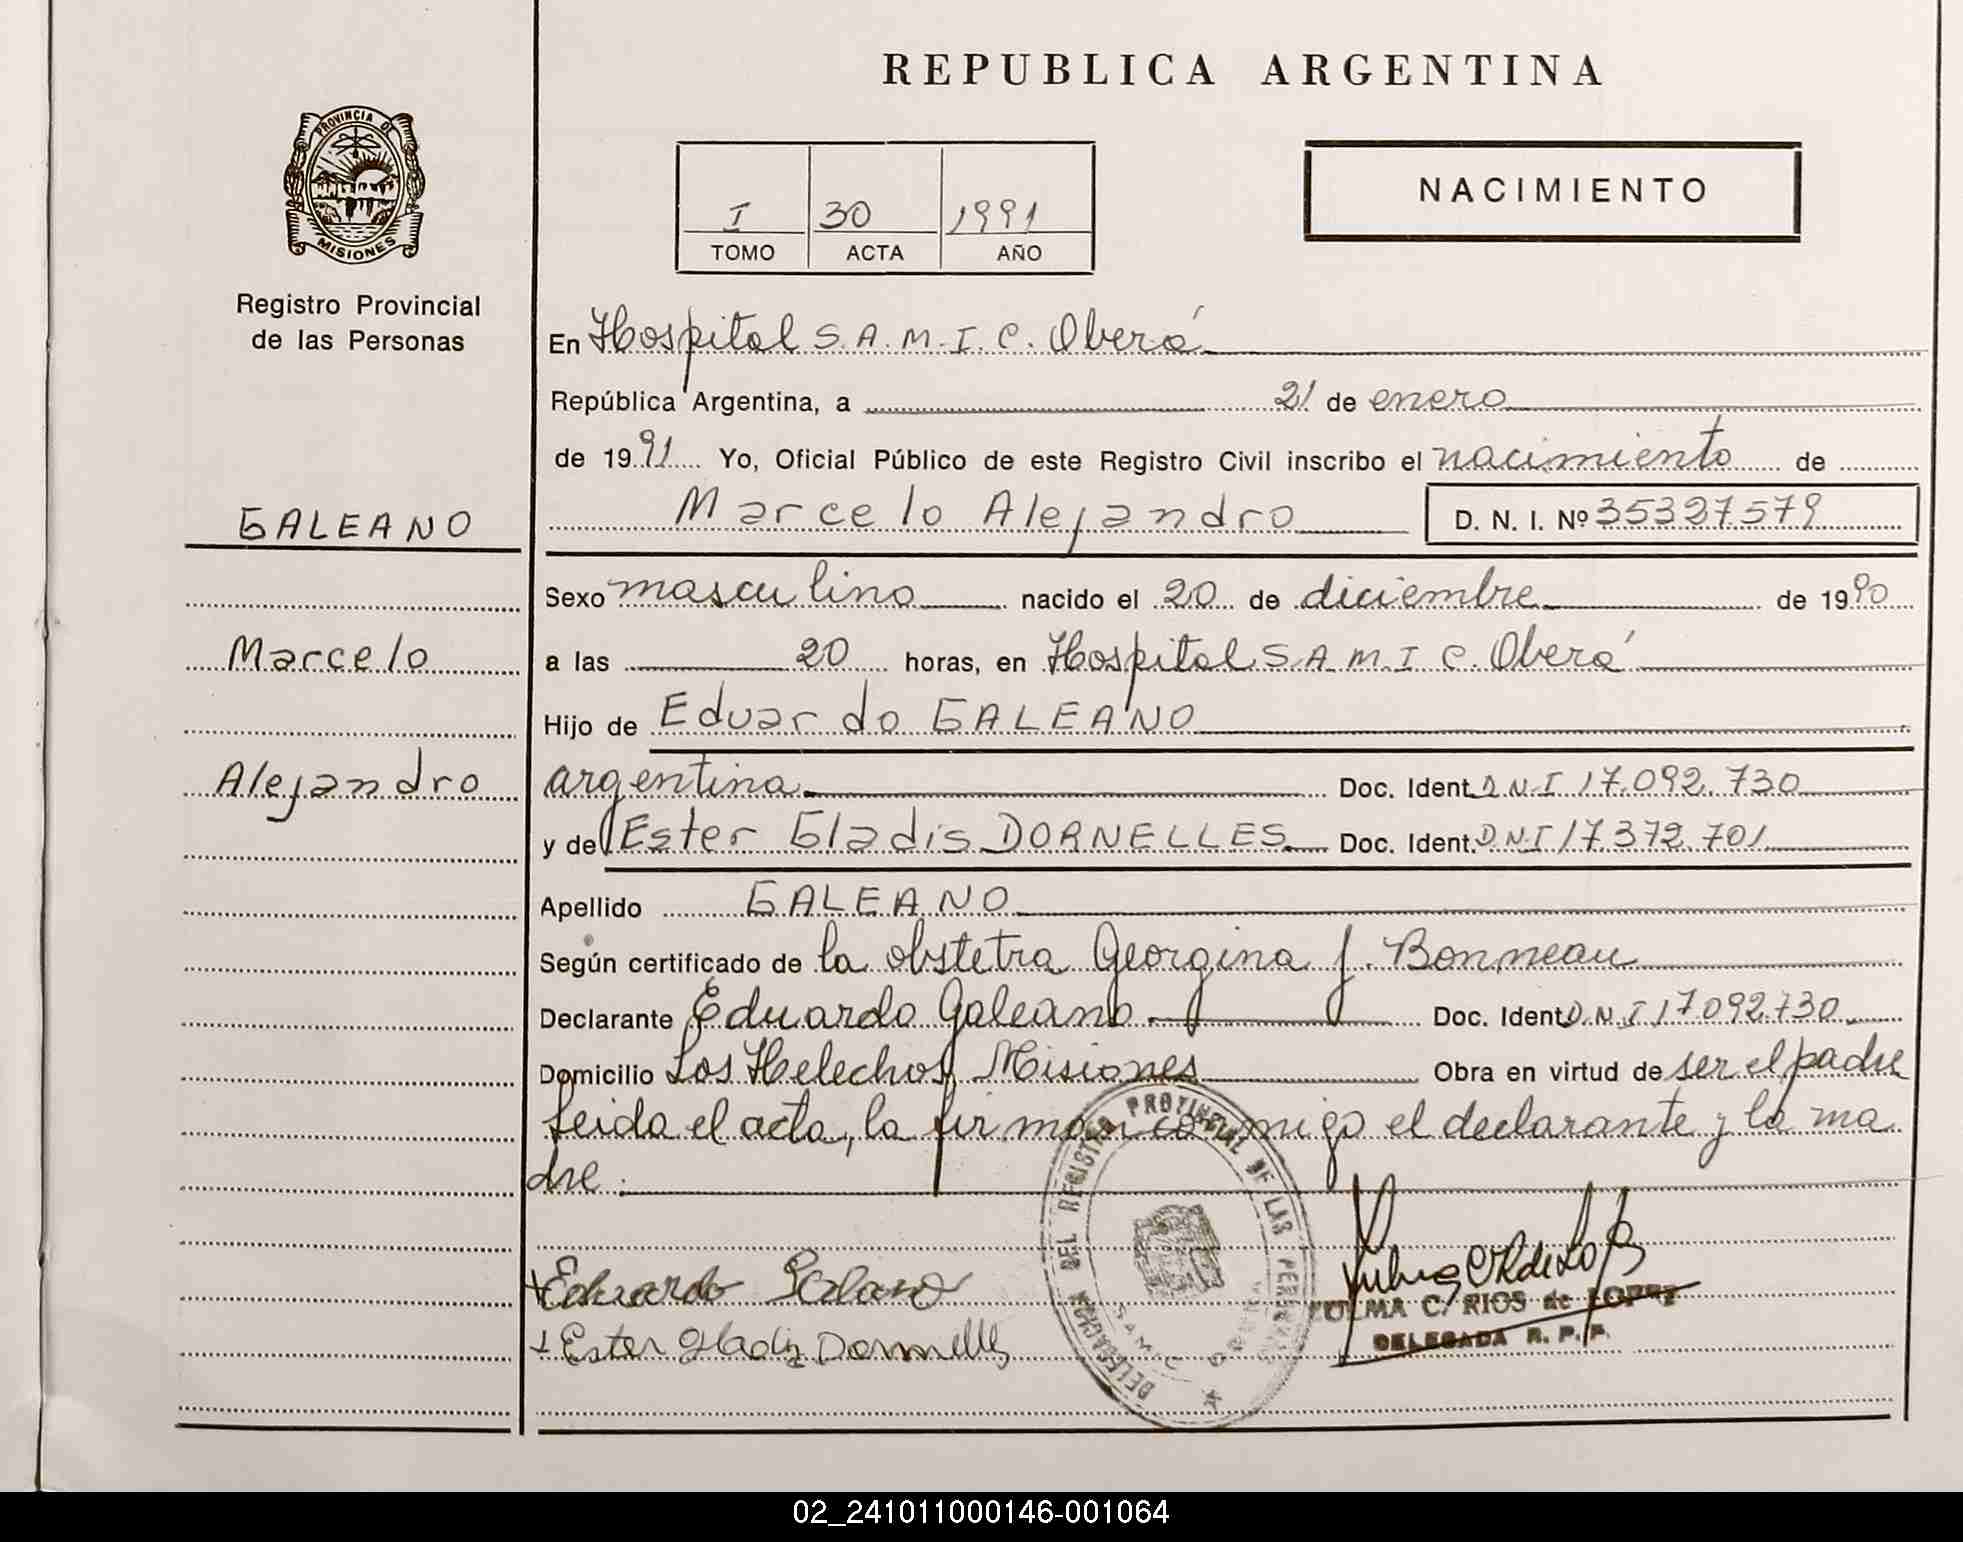 REPUBLICA ARGENTINA
PROVINCIA DE
MISIONES
Registro Provincial
de las Personas
I 30 1991
TOMO ACTA AÑO
NACIMIENTO
En Hospital S.A.M.I.C. Oberá
República Argentina, a 21 de enero
de 1991 Yo, Oficial Público de este Registro Civil inscribo el nacimiento de
GALEANO
Marcelo Alejandro D. N. I. Nº 35327579
Sexo masculino nacido el 20 de diciembre de 1990
Marcelo
a las 20 horas, en Hospital S.A.M.I.C. Oberá
Hijo de Eduardo GALEANO
Alejandro
argentina Doc. Ident. D.N.I 17.092.730
y de Ester Gladis DORNELLES Doc. Ident. D.N.I 17.372.701
Apellido GALEANO
Según certificado de la obstetra Georgina J. Bonneau
Declarante Eduardo Galeano Doc. Ident. D.N.I 17092.730
Domicilio Los Helechos, Misiones Obra en virtud de ser el padre
Leida el acta, la firman comigo el declarante y la ma
dre.
Eduardo Galeano
Ester Gladis Dornelles
DELEGACION DEL REGISTRO PROVINCIAL DE LAS PERSONAS
SAMIC OBERA
C. RIOS de LOPEZ
DELEGADA R. P. P.
02_241011000146-001064